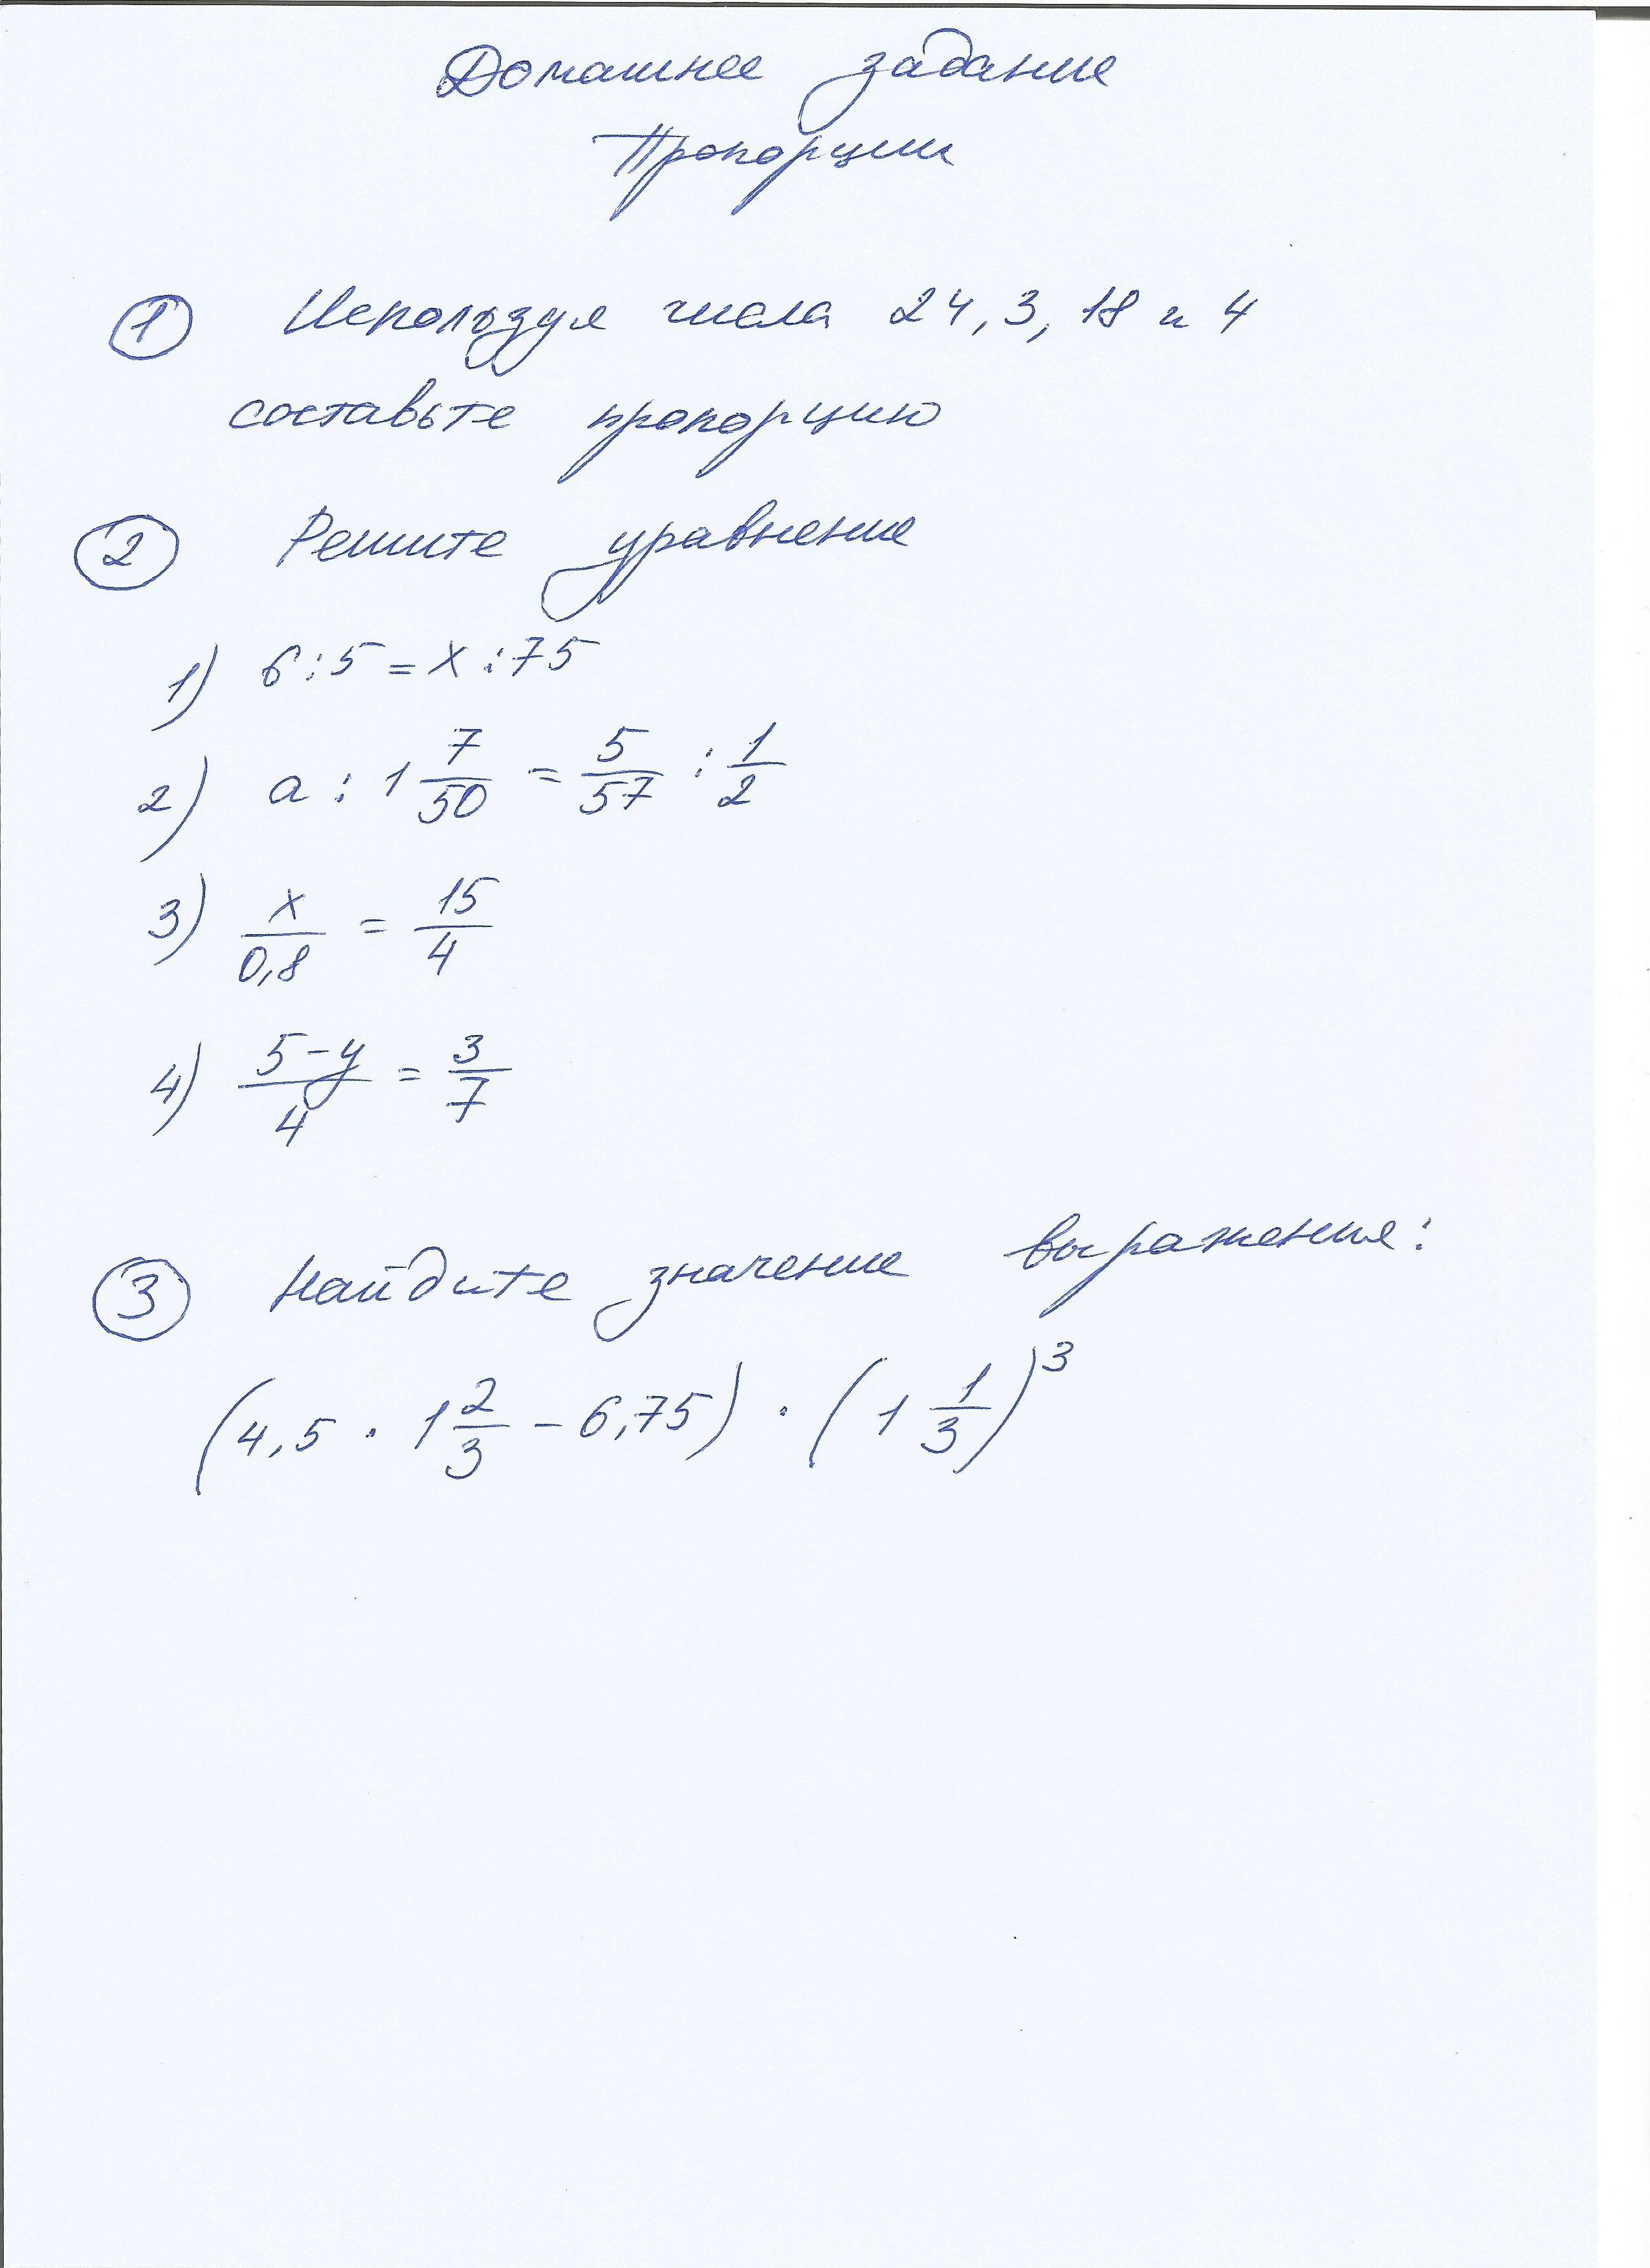 Домашнее задание
Пропорции
① Используя числа 24, 3, 18 и 4
составьте пропорцию
② Решите уравнение
1) 6 : 5 = x : 75
2) a : 1 7/50 = 5/57 : 1/2
3) x/0,8 = 15/4
4) (5-y)/4 = 3/7
③ Найдите значение выражения:
(4,5 · 1 2/3 - 6,75) · (1 1/3)³